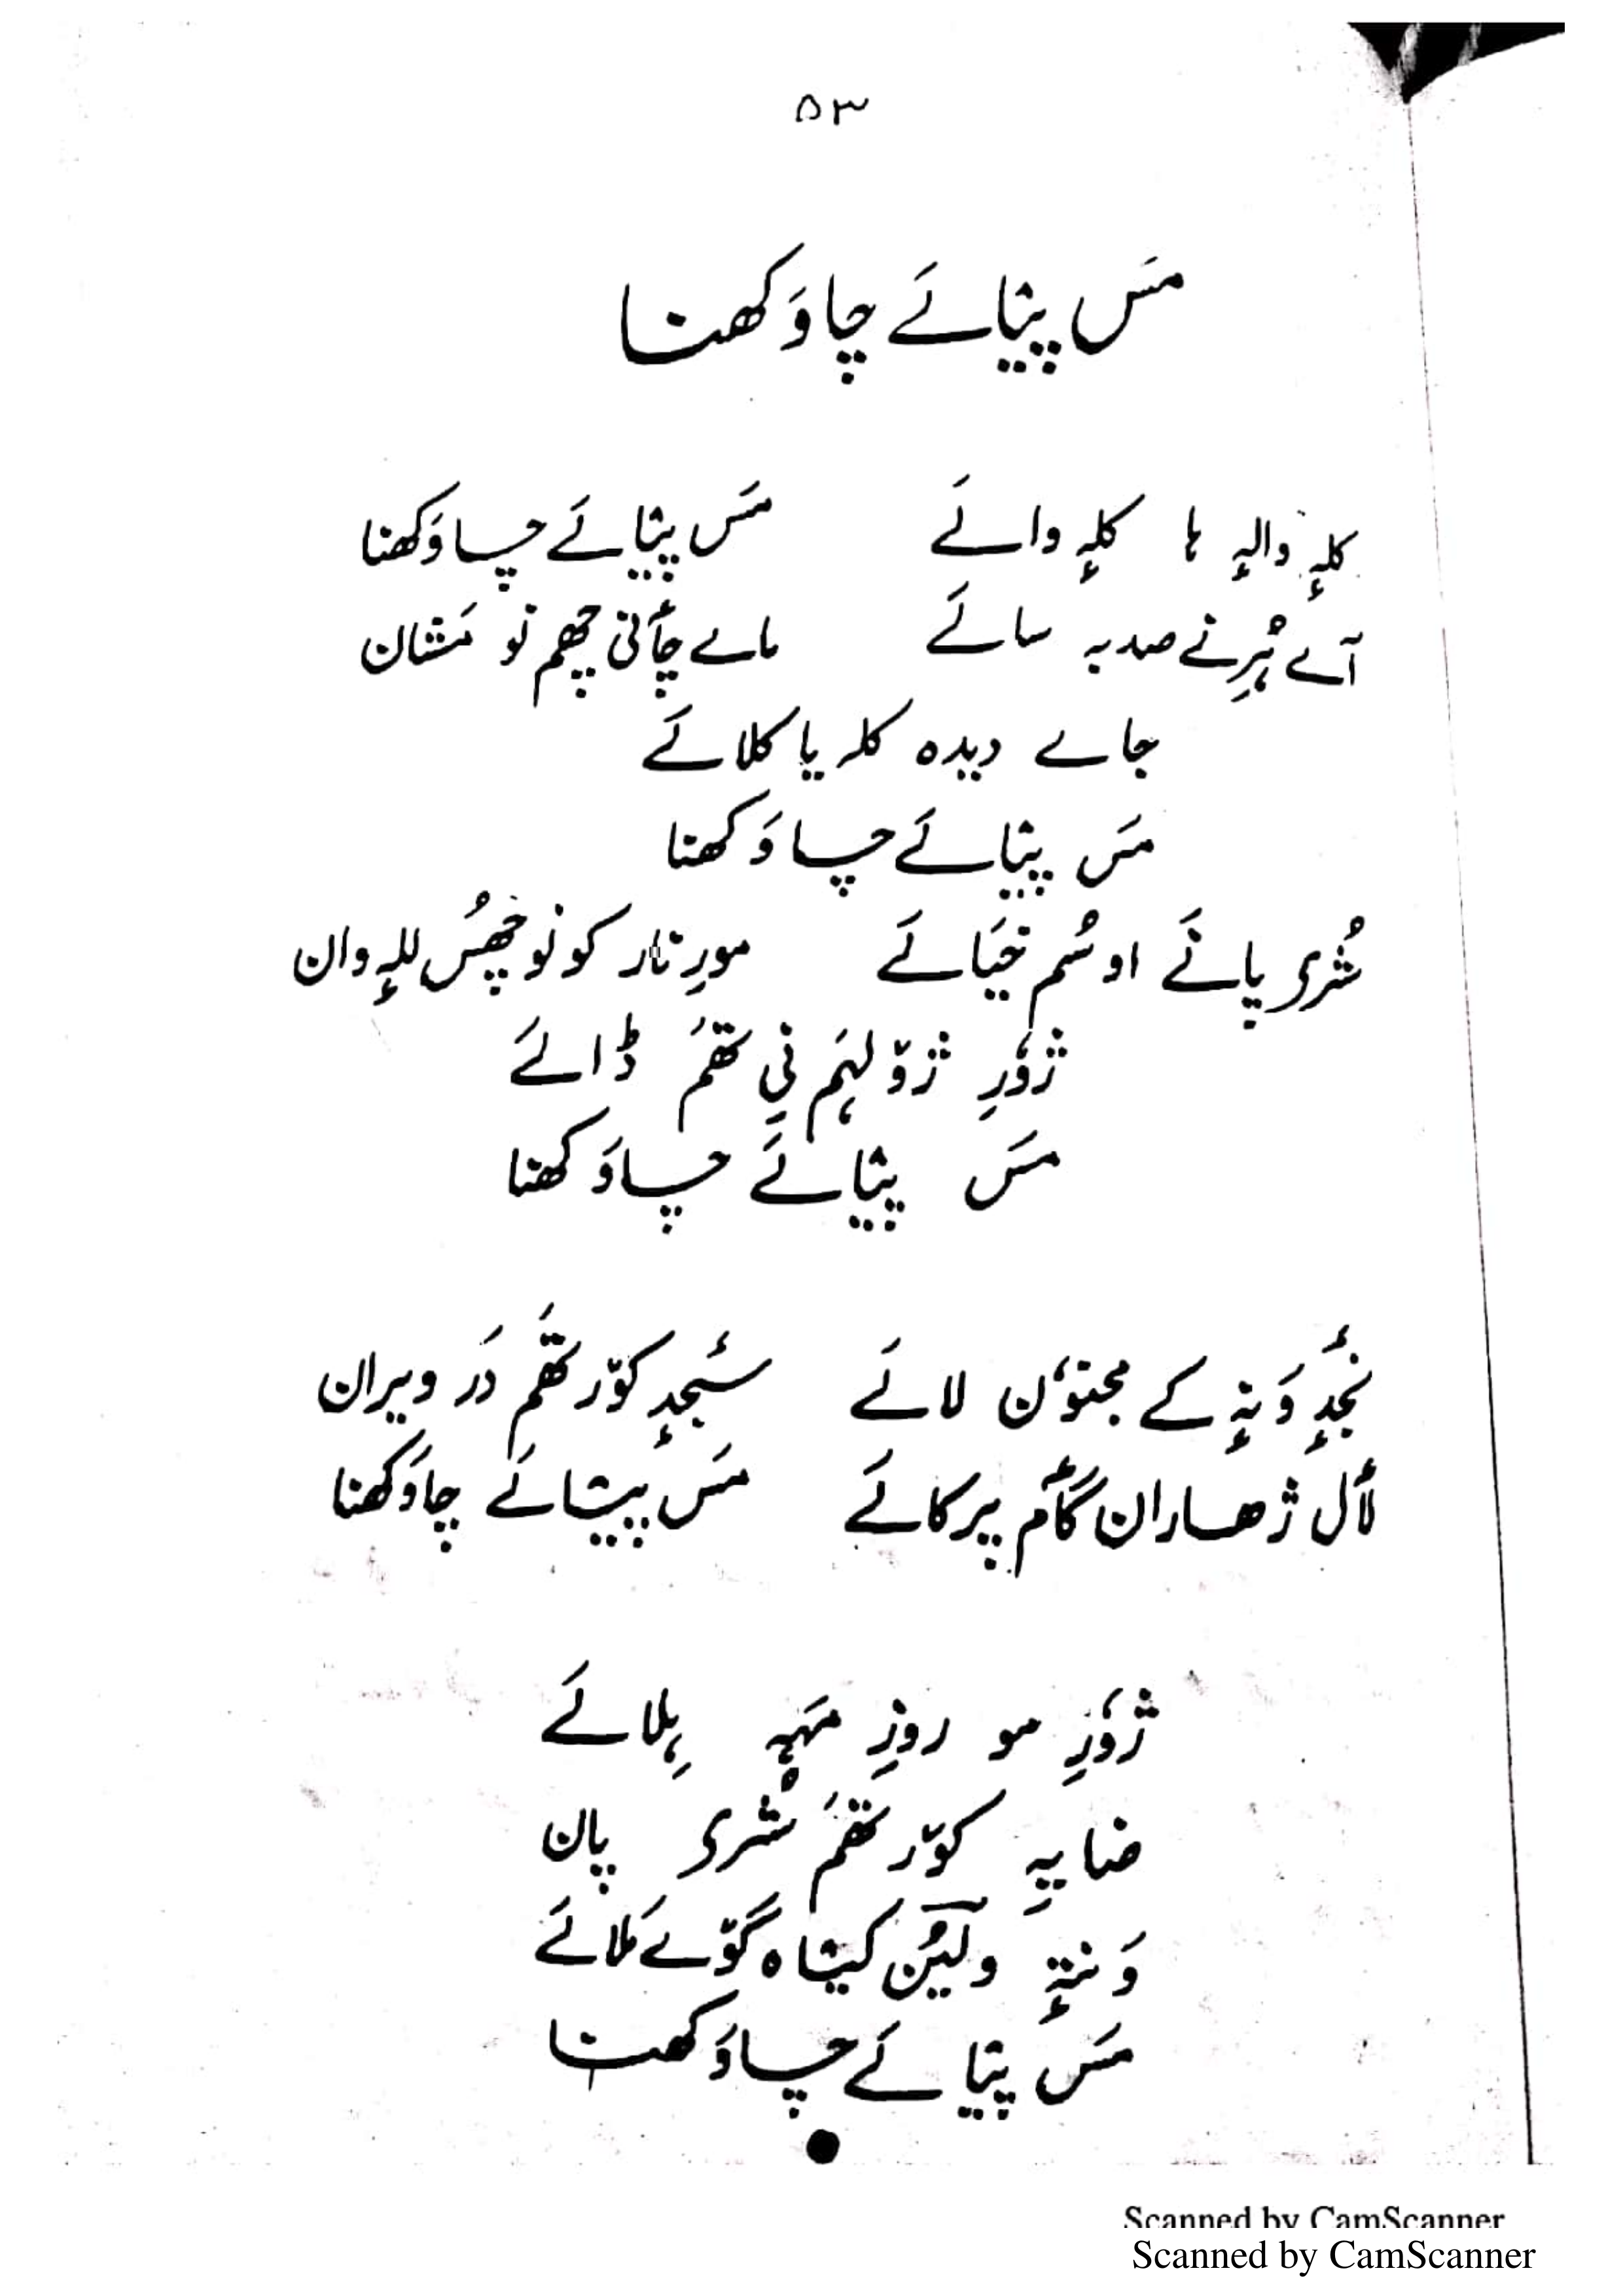 ۵۳
مَس پیٹائے چاوَکھنا
کلہٕ والہٕ ہا کلہٕ وائے مَس پیٹائے چاوَکھنا
آے ہُرِنے صدبہ سائے ماے چأنی چھم نو مَشان
جاے دیدہ کلہ یا کلائے
مَس پیٹائے چاوَکھنا
شُری پانَے اوسُم خیَائے مورِ نار کونو چھُس للہٕ وان
ژوٗرِ ژوٚلہَم نیِ تھمَ ڈائے
مَس پیٹائے چاوَکھنا
نجدٕ وَنہٕ کے مجنوٗن لائے سٔجدٕ کوٚرتھَم دَر ویران
لأل ژھاران گأم پرکائے مَس پیٹائے چاوَکھنا
ژوٗرِ مو روزِ مَہہِ ہِلائے
ضایہِ کوٚرتھمَ شُری پان
وَنتہٕ ولیُن کیٹاہ گوٚے مَلائے
مَس پیٹائے چاوَکھنا
Scanned by CamScanner
Scanned by CamScanner